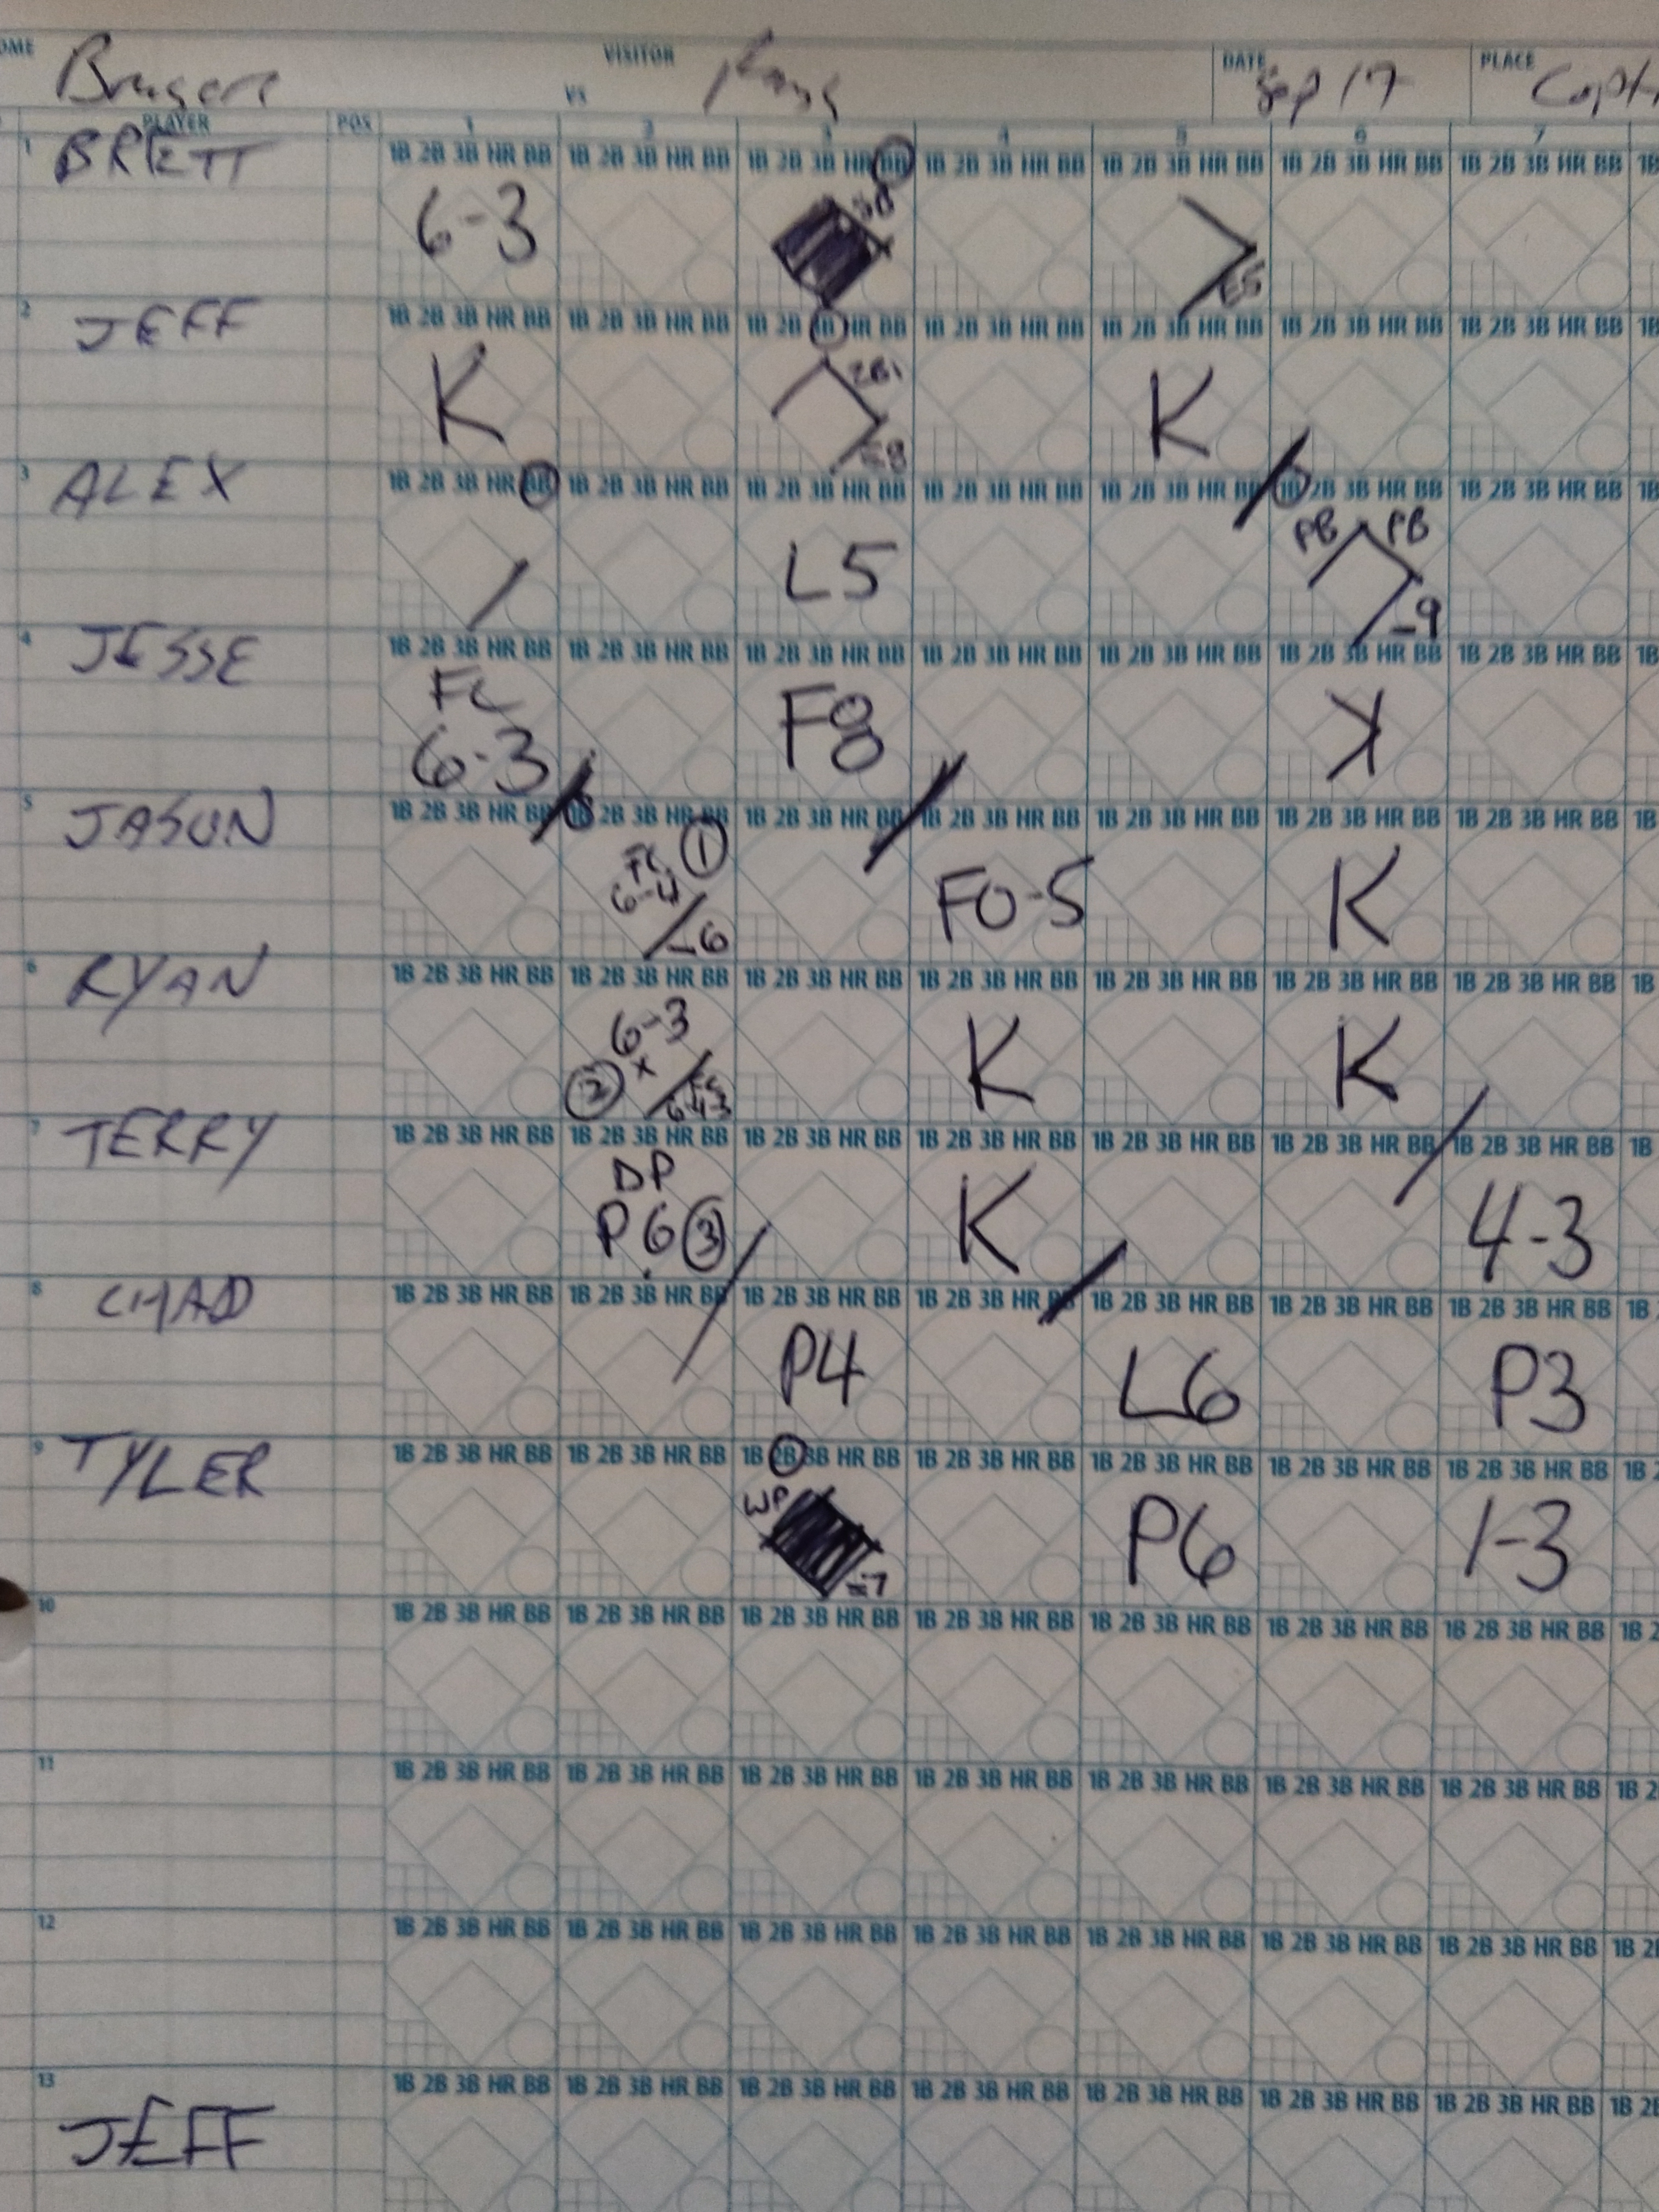 OME VISITOR DATE PLACE
VS Sep 17
PLAYER POS 1 2 3 4 5 6 7
1 BRETT 1B 2B 3B HR BB 1B 2B 3B HR BB 1B 2B 3B HR BB 1B 2B 3B HR BB 1B 2B 3B HR BB 1B 2B 3B HR BB 1B 2B 3B HR BB 1B
6-3 SB E5
2 JEFF 1B 2B 3B HR BB 1B 2B 3B HR BB 1B 2B 3B HR BB 1B 2B 3B HR BB 1B 2B 3B HR BB 1B 2B 3B HR BB 1B 2B 3B HR BB 1B
K 2BI K
3 ALEX 1B 2B 3B HR BB 1B 2B 3B HR BB 1B 2B 3B HR BB 1B 2B 3B HR BB 1B 2B 3B HR BB 1B 2B 3B HR BB 1B 2B 3B HR BB 1B
L5 PB PB -9
4 JESSE 1B 2B 3B HR BB 1B 2B 3B HR BB 1B 2B 3B HR BB 1B 2B 3B HR BB 1B 2B 3B HR BB 1B 2B 3B HR BB 1B 2B 3B HR BB 1B
FC
6-3 F8 K
5 JASON 1B 2B 3B HR BB 1B 2B 3B HR BB 1B 2B 3B HR BB 1B 2B 3B HR BB 1B 2B 3B HR BB 1B 2B 3B HR BB 1B 2B 3B HR BB 1B
FC 1
6-4 -6 FO-5 K
6 RYAN 1B 2B 3B HR BB 1B 2B 3B HR BB 1B 2B 3B HR BB 1B 2B 3B HR BB 1B 2B 3B HR BB 1B 2B 3B HR BB 1B 2B 3B HR BB 1B
6-3 K K
2 x FC
6-4-3
7 TERRY 1B 2B 3B HR BB 1B 2B 3B HR BB 1B 2B 3B HR BB 1B 2B 3B HR BB 1B 2B 3B HR BB 1B 2B 3B HR BB 1B 2B 3B HR BB 1B
DP
P6 3 K 4-3
8 CHAD 1B 2B 3B HR BB 1B 2B 3B HR BB 1B 2B 3B HR BB 1B 2B 3B HR BB 1B 2B 3B HR BB 1B 2B 3B HR BB 1B 2B 3B HR BB 1B
P4 L6 P3
9 TYLER 1B 2B 3B HR BB 1B 2B 3B HR BB 1B 2B 3B HR BB 1B 2B 3B HR BB 1B 2B 3B HR BB 1B 2B 3B HR BB 1B 2B 3B HR BB 1B 2
WP =7 P6 1-3
10 1B 2B 3B HR BB 1B 2B 3B HR BB 1B 2B 3B HR BB 1B 2B 3B HR BB 1B 2B 3B HR BB 1B 2B 3B HR BB 1B 2B 3B HR BB 1B 2
11 1B 2B 3B HR BB 1B 2B 3B HR BB 1B 2B 3B HR BB 1B 2B 3B HR BB 1B 2B 3B HR BB 1B 2B 3B HR BB 1B 2B 3B HR BB 1B 2
12 1B 2B 3B HR BB 1B 2B 3B HR BB 1B 2B 3B HR BB 1B 2B 3B HR BB 1B 2B 3B HR BB 1B 2B 3B HR BB 1B 2B 3B HR BB 1B 2
13 1B 2B 3B HR BB 1B 2B 3B HR BB 1B 2B 3B HR BB 1B 2B 3B HR BB 1B 2B 3B HR BB 1B 2B 3B HR BB 1B 2B 3B HR BB 1B 2
JEFF